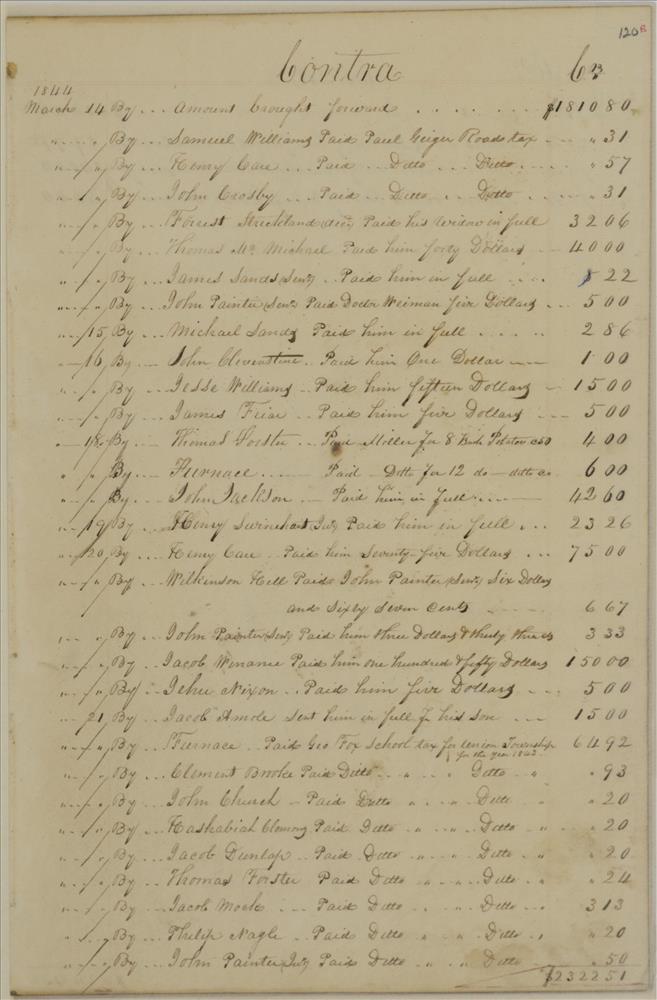 120
Contra Cr
1844
March 14 By ... Amount brought forward . . . . . . . $1810 80
" " By ... Samuel Williams Paid Paul Geiger Roads tax ... " 31
" " By ... Henry Care ... Paid ... Ditto ... Ditto ... " 57
" " By ... John Crosby ... Paid ... Ditto ... Ditto ... " 31
" " By ... Forrest Strickland decd Paid his Widow in full 32 06
" " By ... Thomas Mc Michael Paid him forty Dollars ... 40 00
" " By ... James Sands Senr .. Paid him in full .... 22
" " By ... John Painter Senr Paid Doctr Weiman five Dollars ... 5 00
" 15 By ... Michael Sands Paid him in full .... 2 86
" 16 By ... John Clevenstine .. Paid him One Dollar ... 1 00
" " By ... Jesse Williams .. Paid him fifteen Dollars ... 15 00
" " By ... James Friar .. Paid him five Dollars ... 5 00
" 18 By ... Thomas Forster ... Paid Miller for 8 Bush Potatoes @50 4 00
" " By ... Furnace ... Paid - Ditto for 12 do - ditto 6 00
" " By ... John Jackson ... Paid him in full ... 42 60
" 19 By ... Henry Swinehart Junr Paid him in full ... 23 26
" 20 By ... Henry Care .. Paid him Seventy-five Dollars ... 75 00
" " By ... Wilkinson Hill Paid John Painter Senr Six Dollars
and Sixty Seven Cents ... 6 67
" " By ... John Painter Senr Paid him three Dollars & thirty three cts 3 33
" " By ... Jacob Winance Paid him one hundred & fifty Dollars 150 00
" " By ... Jehu Nixon .. Paid him five Dollars ... 5 00
" 21 By ... Jacob Amole sent him in full p his Son ... 15 00
" " By ... Furnace .. Paid Geo Fox School tax for Union Township 64 92
for the year 1843
" " By ... Clement Brooke Paid Ditto " " Ditto " " 93
" " By ... John Church - Paid Ditto " " Ditto " " 20
" " By ... Hashabiah Clemons Paid Ditto " " Ditto " " 20
" " By ... Jacob Dunlap .. Paid Ditto " " Ditto " " 20
" " By ... Thomas Forster Paid Ditto " " Ditto " " 24
" " By ... Jacob Mock ... Paid Ditto " " Ditto " 3 13
" " By ... Philip Nagle .. Paid Ditto " " Ditto " " 20
" " By ... John Painter Junr Paid Ditto " " Ditto " " 50
$2322 51